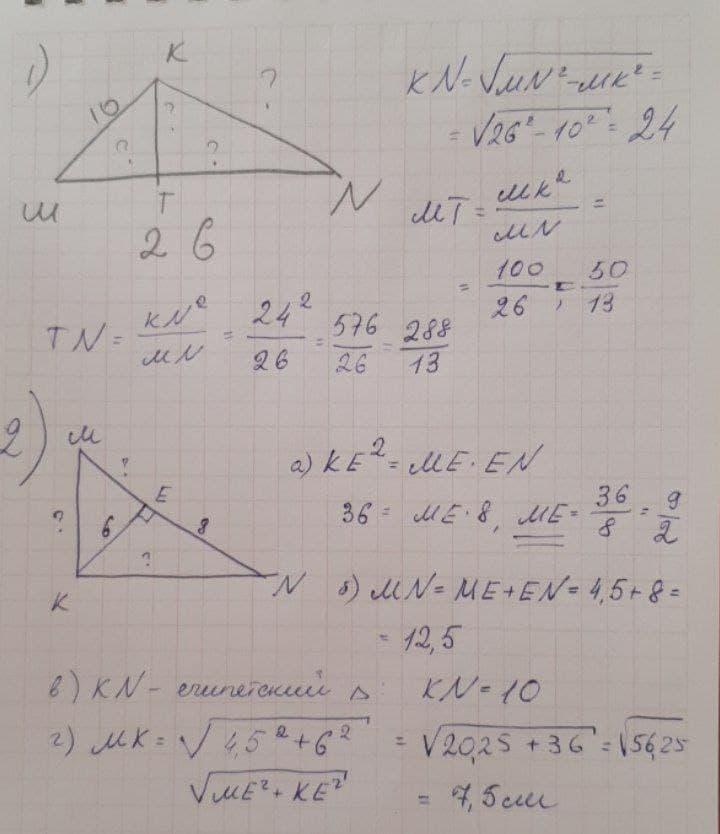 1)
K
10
?
?
?
?
M
T
N
26
KN = √MN² - MK² =
= √26² - 10² = 24
MT = MK² / MN =
= 100 / 26 = 50 / 13
TN = KN² / MN = 24² / 26 = 576 / 26 = 288 / 13
2)
M
?
E
?
6
8
?
K
N
а) KE² = ME · EN
36 = ME · 8, ME = 36 / 8 = 9 / 2
б) MN = ME + EN = 4,5 + 8 =
= 12,5
в) KN - египетский Δ: KN = 10
г) MK = √4,5² + 6² = √20,25 + 36 = √56,25
√ME² + KE² = 7,5 см